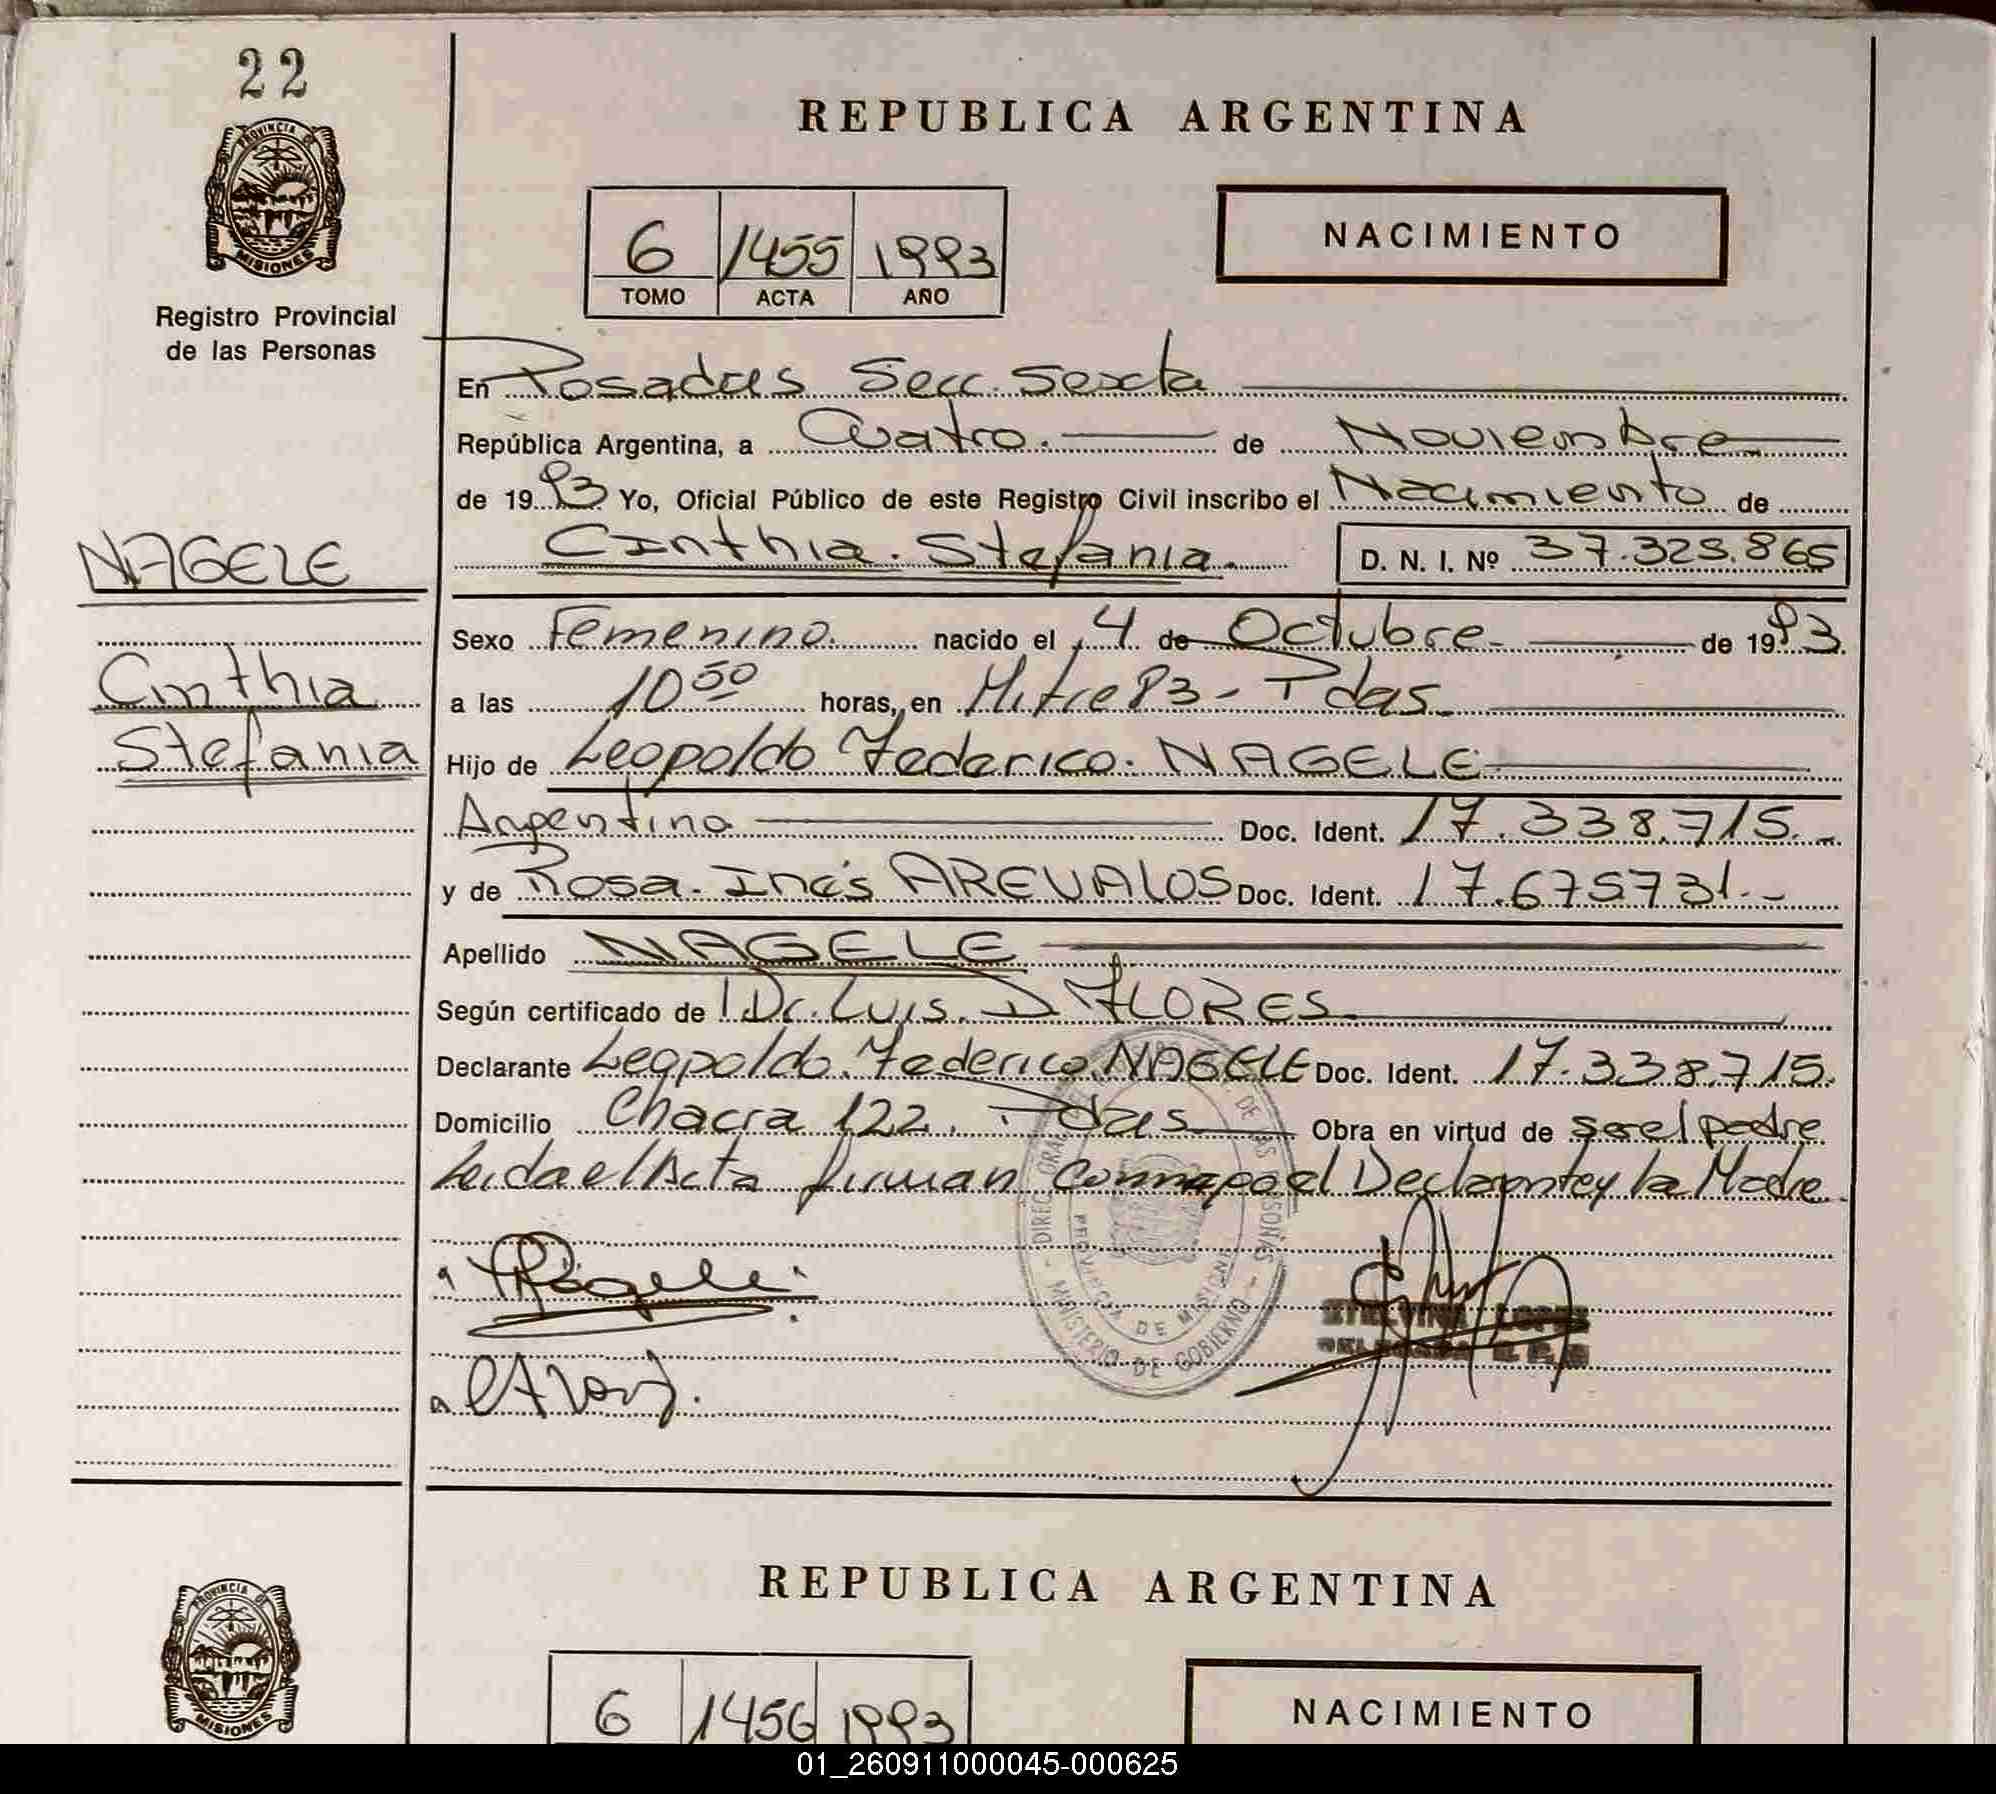 22
PROVINCIA DE
MISIONES
Registro Provincial
de las Personas
REPUBLICA ARGENTINA
6 1455 1993
TOMO ACTA AÑO
NACIMIENTO
En Posadas Secc. Sexta
República Argentina, a Cuatro. de Noviembre
de 1993 Yo, Oficial Público de este Registro Civil inscribo el Nacimiento de
Cinthia. Stefania. D. N. I. Nº 37.323.865
NAGELE
Cinthia
Stefania
Sexo Femenino. nacido el 4 de Octubre- de 1993.
a las 10 50 horas, en Mitre 83 - Pdas.
Hijo de Leopoldo Federico. NAGELE
Argentina Doc. Ident. 17.338.715.-
y de Rosa. Inés AREVALOS Doc. Ident. 17.675731.-
Apellido NAGELE
Según certificado de Dr. Luis. D FLORES
Declarante Leopoldo. Federico. NAGELE Doc. Ident. 17.338.715.
Domicilio Chacra 122. Pdas Obra en virtud de ser el padre
Leida el Acta firman Conmigo el Declarante y la Madre.
DE LAS PERSONAS
PROVINCIA DE MISIONES
- MINISTERIO DE GOBIERNO -
LOPES
PROVINCIA DE
MISIONES
REPUBLICA ARGENTINA
6 1456 1993
NACIMIENTO
01_260911000045-000625